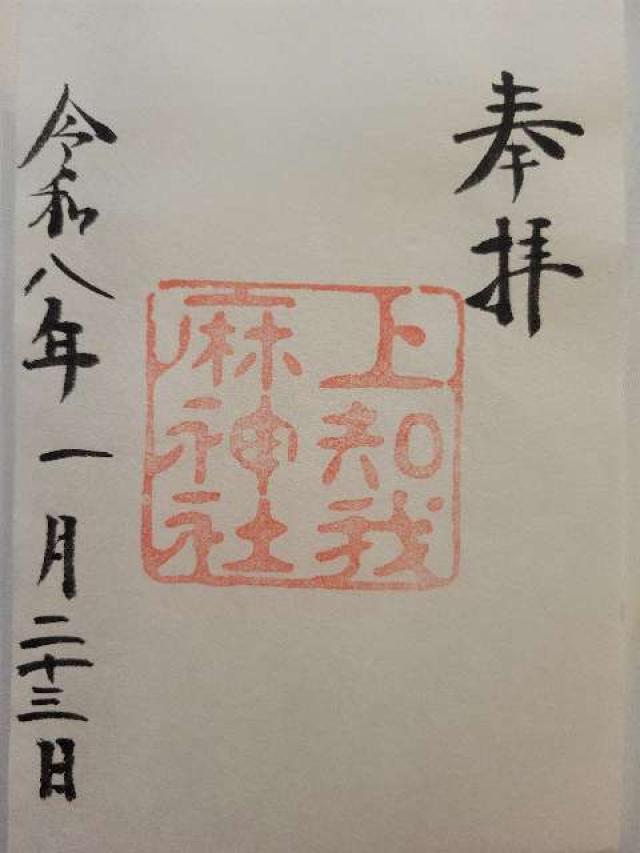 奉拝
上知我
麻神社
令和八年一月二十三日